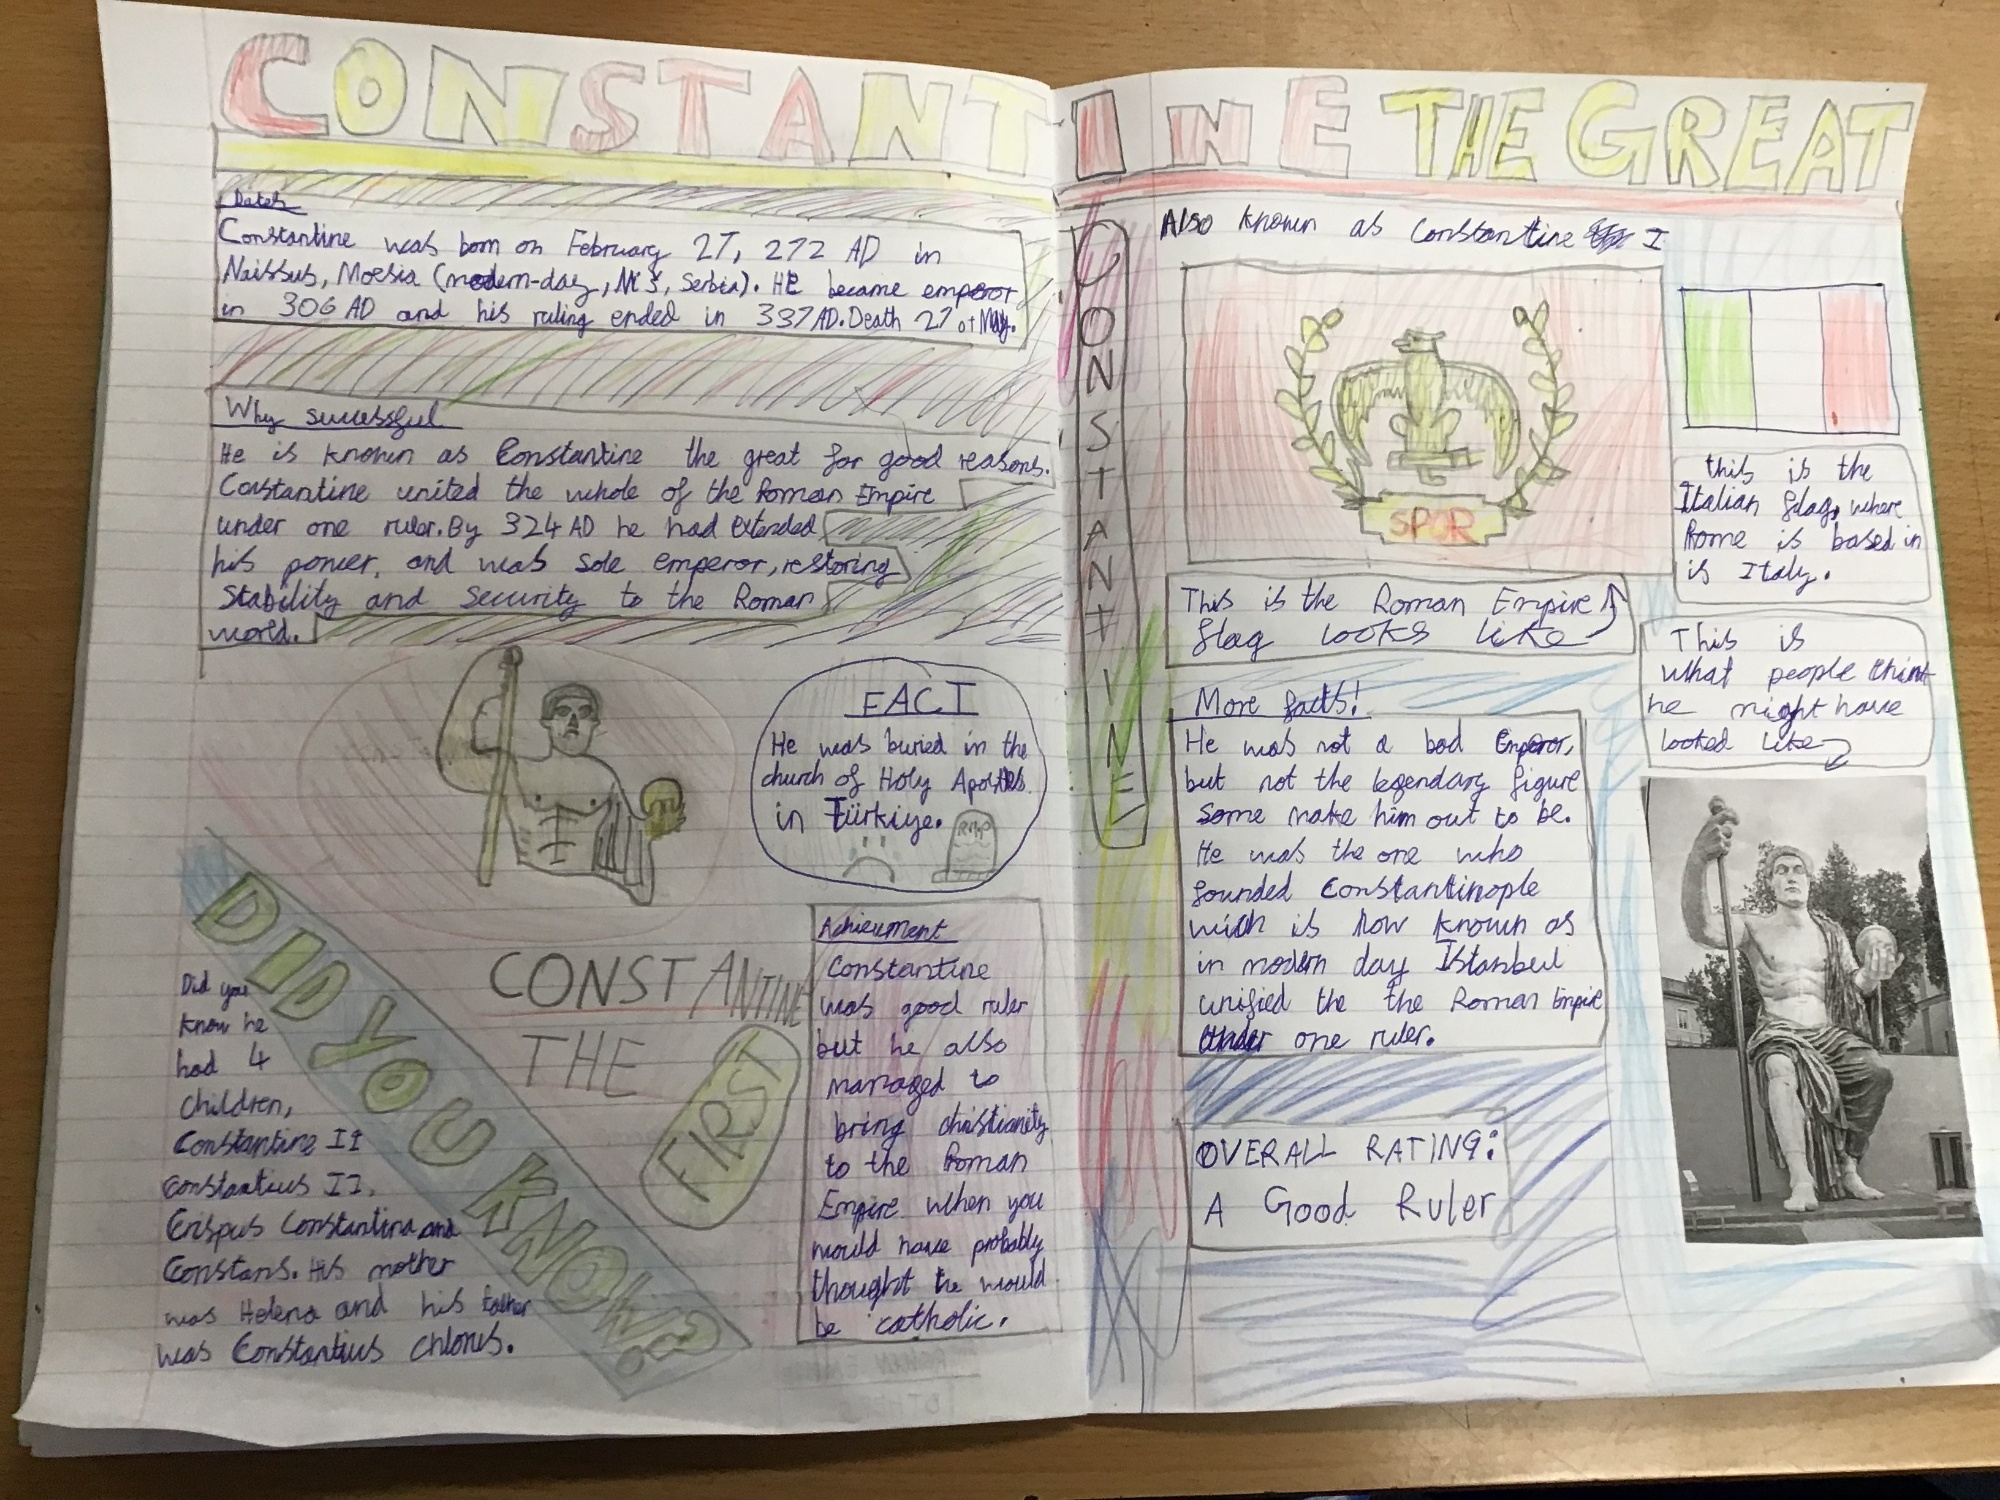 CONSTANTINE THE GREAT
Dates
Constantine was born on February 27, 272 AD in
Naissus, Moesia (modern-day, Niš, Serbia). HE became emperor
in 306 AD and his ruling ended in 337 AD. Death 27 of May.
Why successful
He is known as Constantine the great for good reasons.
Constantine united the whole of the Roman Empire
under one ruler. By 324 AD he had extended
his power, and was sole emperor, restoring
Stability and Security to the Roman
world.
FACT
He was buried in the
church of Holy Apostles
in Türkiye.
RIP
DID YOU KNOW?
Did you
know he
had 4
children,
Constantine II
Constantius II,
Crispus Constantina and
Constans. His mother
was Helena and his father
was Constantius chlorus.
CONSTANTINE
THE
FIRST
Achievment
Constantine
was good ruler
but he also
managed to
bring christianity
to the Roman
Empire when you
would have probably
thought he would
be catholic.
CONSTANTINE
Also known as Constantine I
SPQR
This is the Roman Empire
flag looks like
this is the
Italian flag, where
Rome is based in
is Italy.
This is
what people think
he might have
looked like
More facts!
He was not a bad Emperor,
but not the legendary figure
some make him out to be.
He was the one who
founded Constantinople
wich is now known as
in modern day Istanbul
unified the the Roman Empire
under one ruler.
OVERALL RATING:
A Good Ruler